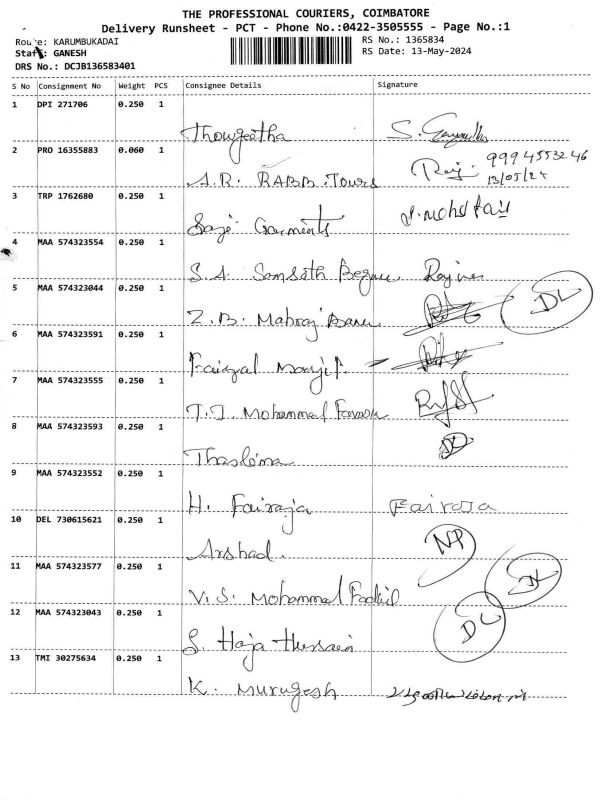 THE PROFESSIONAL COURIERS, COIMBATORE
Delivery Runsheet - PCT - Phone No.:0422-3505555 - Page No.:1
Route: KARUMBUKADAI RS No.: 1365834
Staff: GANESH RS Date: 13-May-2024
DRS No.: DCJB136583401
S No Consignment No Weight PCS Consignee Details Signature
1 DPI 271706 0.250 1
Thowjeetha S.
2 PRO 16355883 0.060 1 9994553246
A.R. RABB Tours Raj 13/05/24
3 TRP 1762680 0.250 1
Saji Garments
4 MAA 574323554 0.250 1
S.A. Samsath Begum
5 MAA 574323044 0.250 1 DL
Z.B. Mahraj Banu
6 MAA 574323591 0.250 1
Faizal
7 MAA 574323555 0.250 1
T.I. Mohammed
8 MAA 574323593 0.250 1 DL
Thaslima
9 MAA 574323552 0.250 1
H. Fairaja Fairoja
10 DEL 730615621 0.250 1 NP
Arshad.
11 MAA 574323577 0.250 1 DL
V.S. Mohammed Fadhil
12 MAA 574323043 0.250 1 DL
S. Haja Hussain
13 TMI 30275634 0.250 1
K. Murugesh